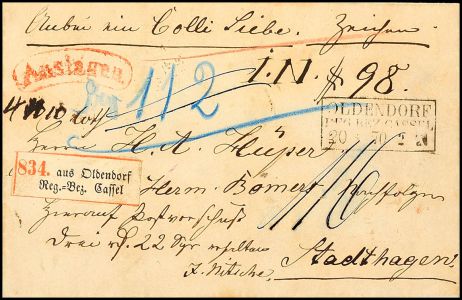 Anbei ein Colli Siebe. Zeichen
Auslagen
112
I. N. # 98.
OLDENDORF
REG. BEZ. CASSEL
20 70 2-N
Herrn H. A. Hüper
834. aus Oldendorf
Reg.-Bez. Cassel
Herm. Bömers Nachfolger
Hierauf Postvorschuß
Drei rf. 22 Sgr erhalten
F. Nitsche
Stadthagen.